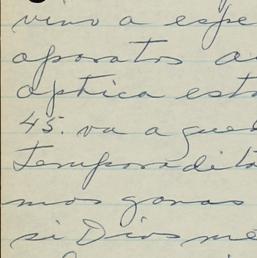 vino a espe
aparatos a
optica est
45. va a que
temporadita
mos ganas
si Dios me